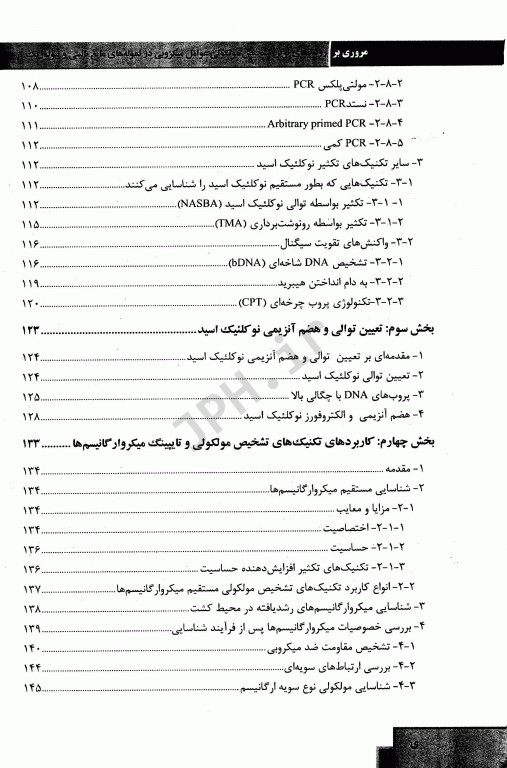 مروری بر
۲-۸-۲- مولتی‌پلکس PCR ........ ۱۰۸
۲-۸-۳- نستدPCR ........ ۱۱۰
۲-۸-۴- Arbitrary primed PCR ........ ۱۱۱
۲-۸-۵- PCR کمی ........ ۱۱۲
۳- سایر تکنیک‌های تکثیر نوکلئیک اسید ........ ۱۱۲
۳-۱- تکنیک‌هایی که بطور مستقیم نوکلئیک اسید را شناسایی می‌کنند ........ ۱۱۲
۳-۱-۱- تکثیر بواسطه توالی نوکلئیک اسید (NASBA) ........ ۱۱۲
۳-۱-۲- تکثیر بواسطه رونوشت‌برداری (TMA) ........ ۱۱۵
۳-۲- واکنش‌های تقویت سیگنال ........ ۱۱۶
۳-۲-۱- تشخیص DNA شاخه‌ای (bDNA) ........ ۱۱۶
۳-۲-۲- به دام انداختن هیبرید ........ ۱۱۹
۳-۲-۳-تکنولوژی پروب چرخه‌ای (CPT) ........ ۱۲۰
بخش سوم: تعیین توالی و هضم آنزیمی نوکلئیک اسید ........ ۱۲۳
۱- مقدمه‌ای بر تعیین توالی و هضم آنزیمی نوکلئیک اسید ........ ۱۲۴
۲- تعیین توالی نوکلئیک اسید ........ ۱۲۴
۳- پروب‌های DNA با چگالی بالا ........ ۱۲۵
۴- هضم آنزیمی و الکتروفورز نوکلئیک اسید ........ ۱۲۸
بخش چهارم: کاربردهای تکنیک‌های تشخیص مولکولی و تایپینگ میکروارگانیسم‌ها ........ ۱۳۳
۱- مقدمه ........ ۱۳۴
۲- شناسایی مستقیم میکروارگانیسم‌ها ........ ۱۳۴
۲-۱- مزایا و معایب ........ ۱۳۴
۲-۱-۱- اختصاصیت ........ ۱۳۴
۲-۱-۲- حساسیت ........ ۱۳۶
۲-۱-۳- تکنیک‌های تکثیر افزایش‌دهنده حساسیت ........ ۱۳۶
۲-۲- انواع کاربرد تکنیک‌های تشخیص مولکولی مستقیم میکروارگانیسم‌ها ........ ۱۳۷
۳- شناسایی میکروارگانیسم‌های رشدیافته در محیط کشت ........ ۱۳۸
۴- بررسی خصوصیات میکروارگانیسم‌ها پس از فرآیند شناسایی ........ ۱۳۹
۴-۱- تشخیص مقاومت ضد میکروبی ........ ۱۴۰
۴-۲- بررسی ارتباط‌های سویه‌ای ........ ۱۴۴
۴-۳- شناسایی مولکولی نوع سویه ارگانیسم ........ ۱۴۵
ی
JPH.ir